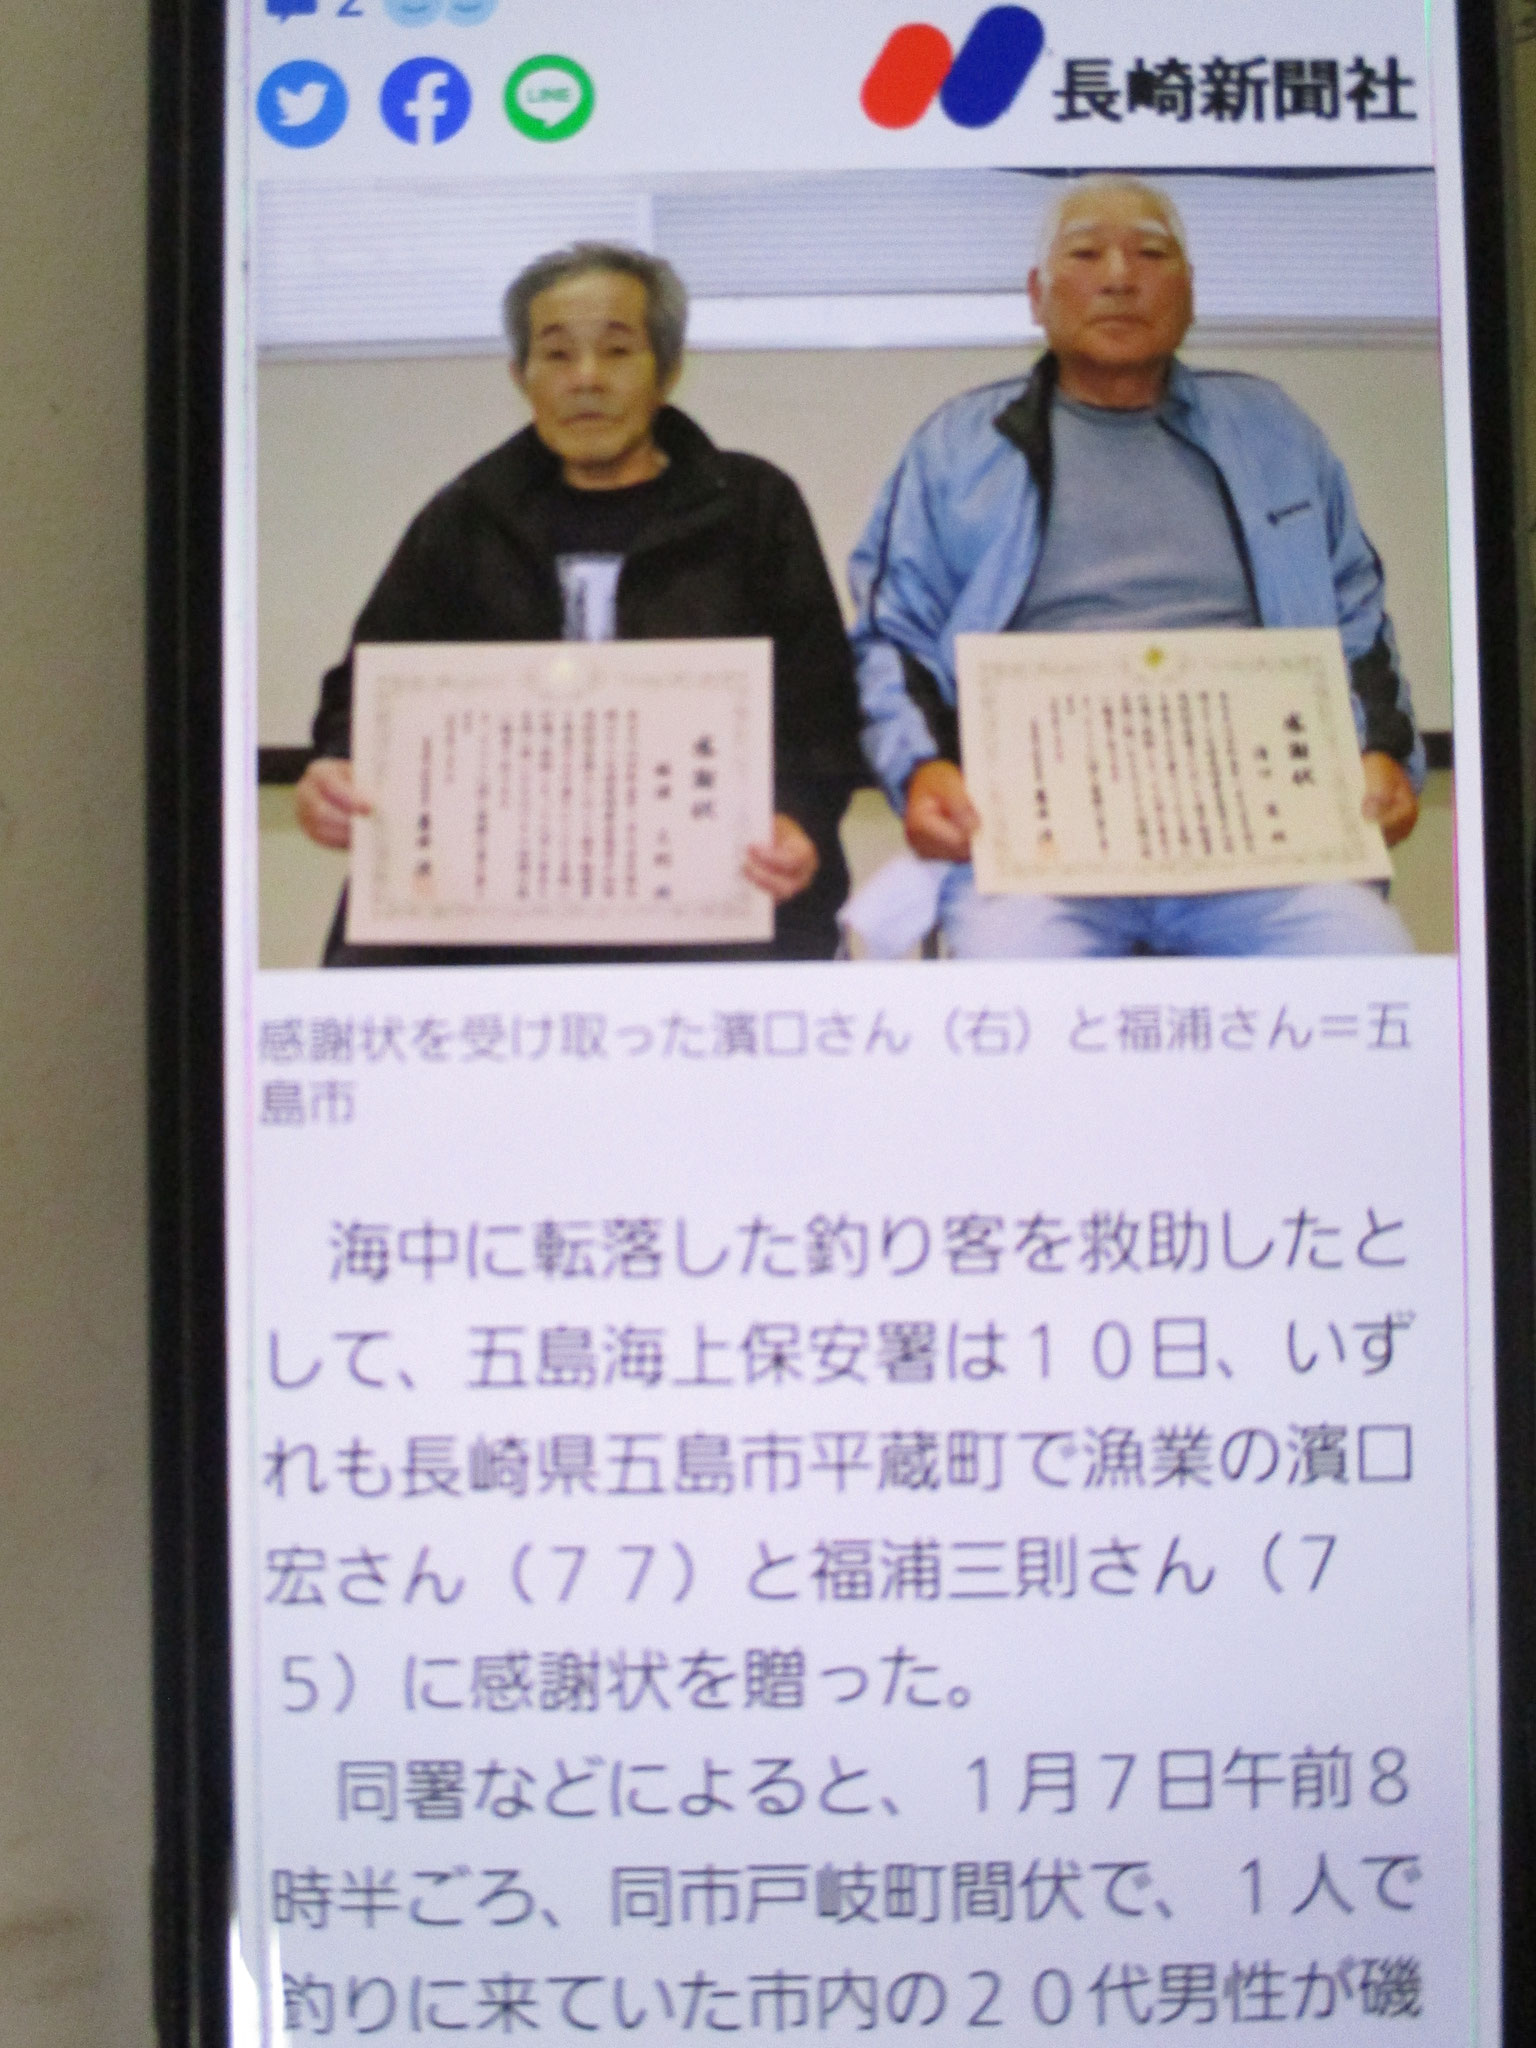 2
LINE
長崎新聞社
感謝状
感謝状
感謝状を受け取った濱口さん（右）と福浦さん＝五
島市
海中に転落した釣り客を救助したと
して、五島海上保安署は１０日、いず
れも長崎県五島市平蔵町で漁業の濱口
宏さん（７７）と福浦三則さん（７
５）に感謝状を贈った。
同署などによると、１月７日午前８
時半ごろ、同市戸岐町間伏で、１人で
釣りに来ていた市内の２０代男性が磯